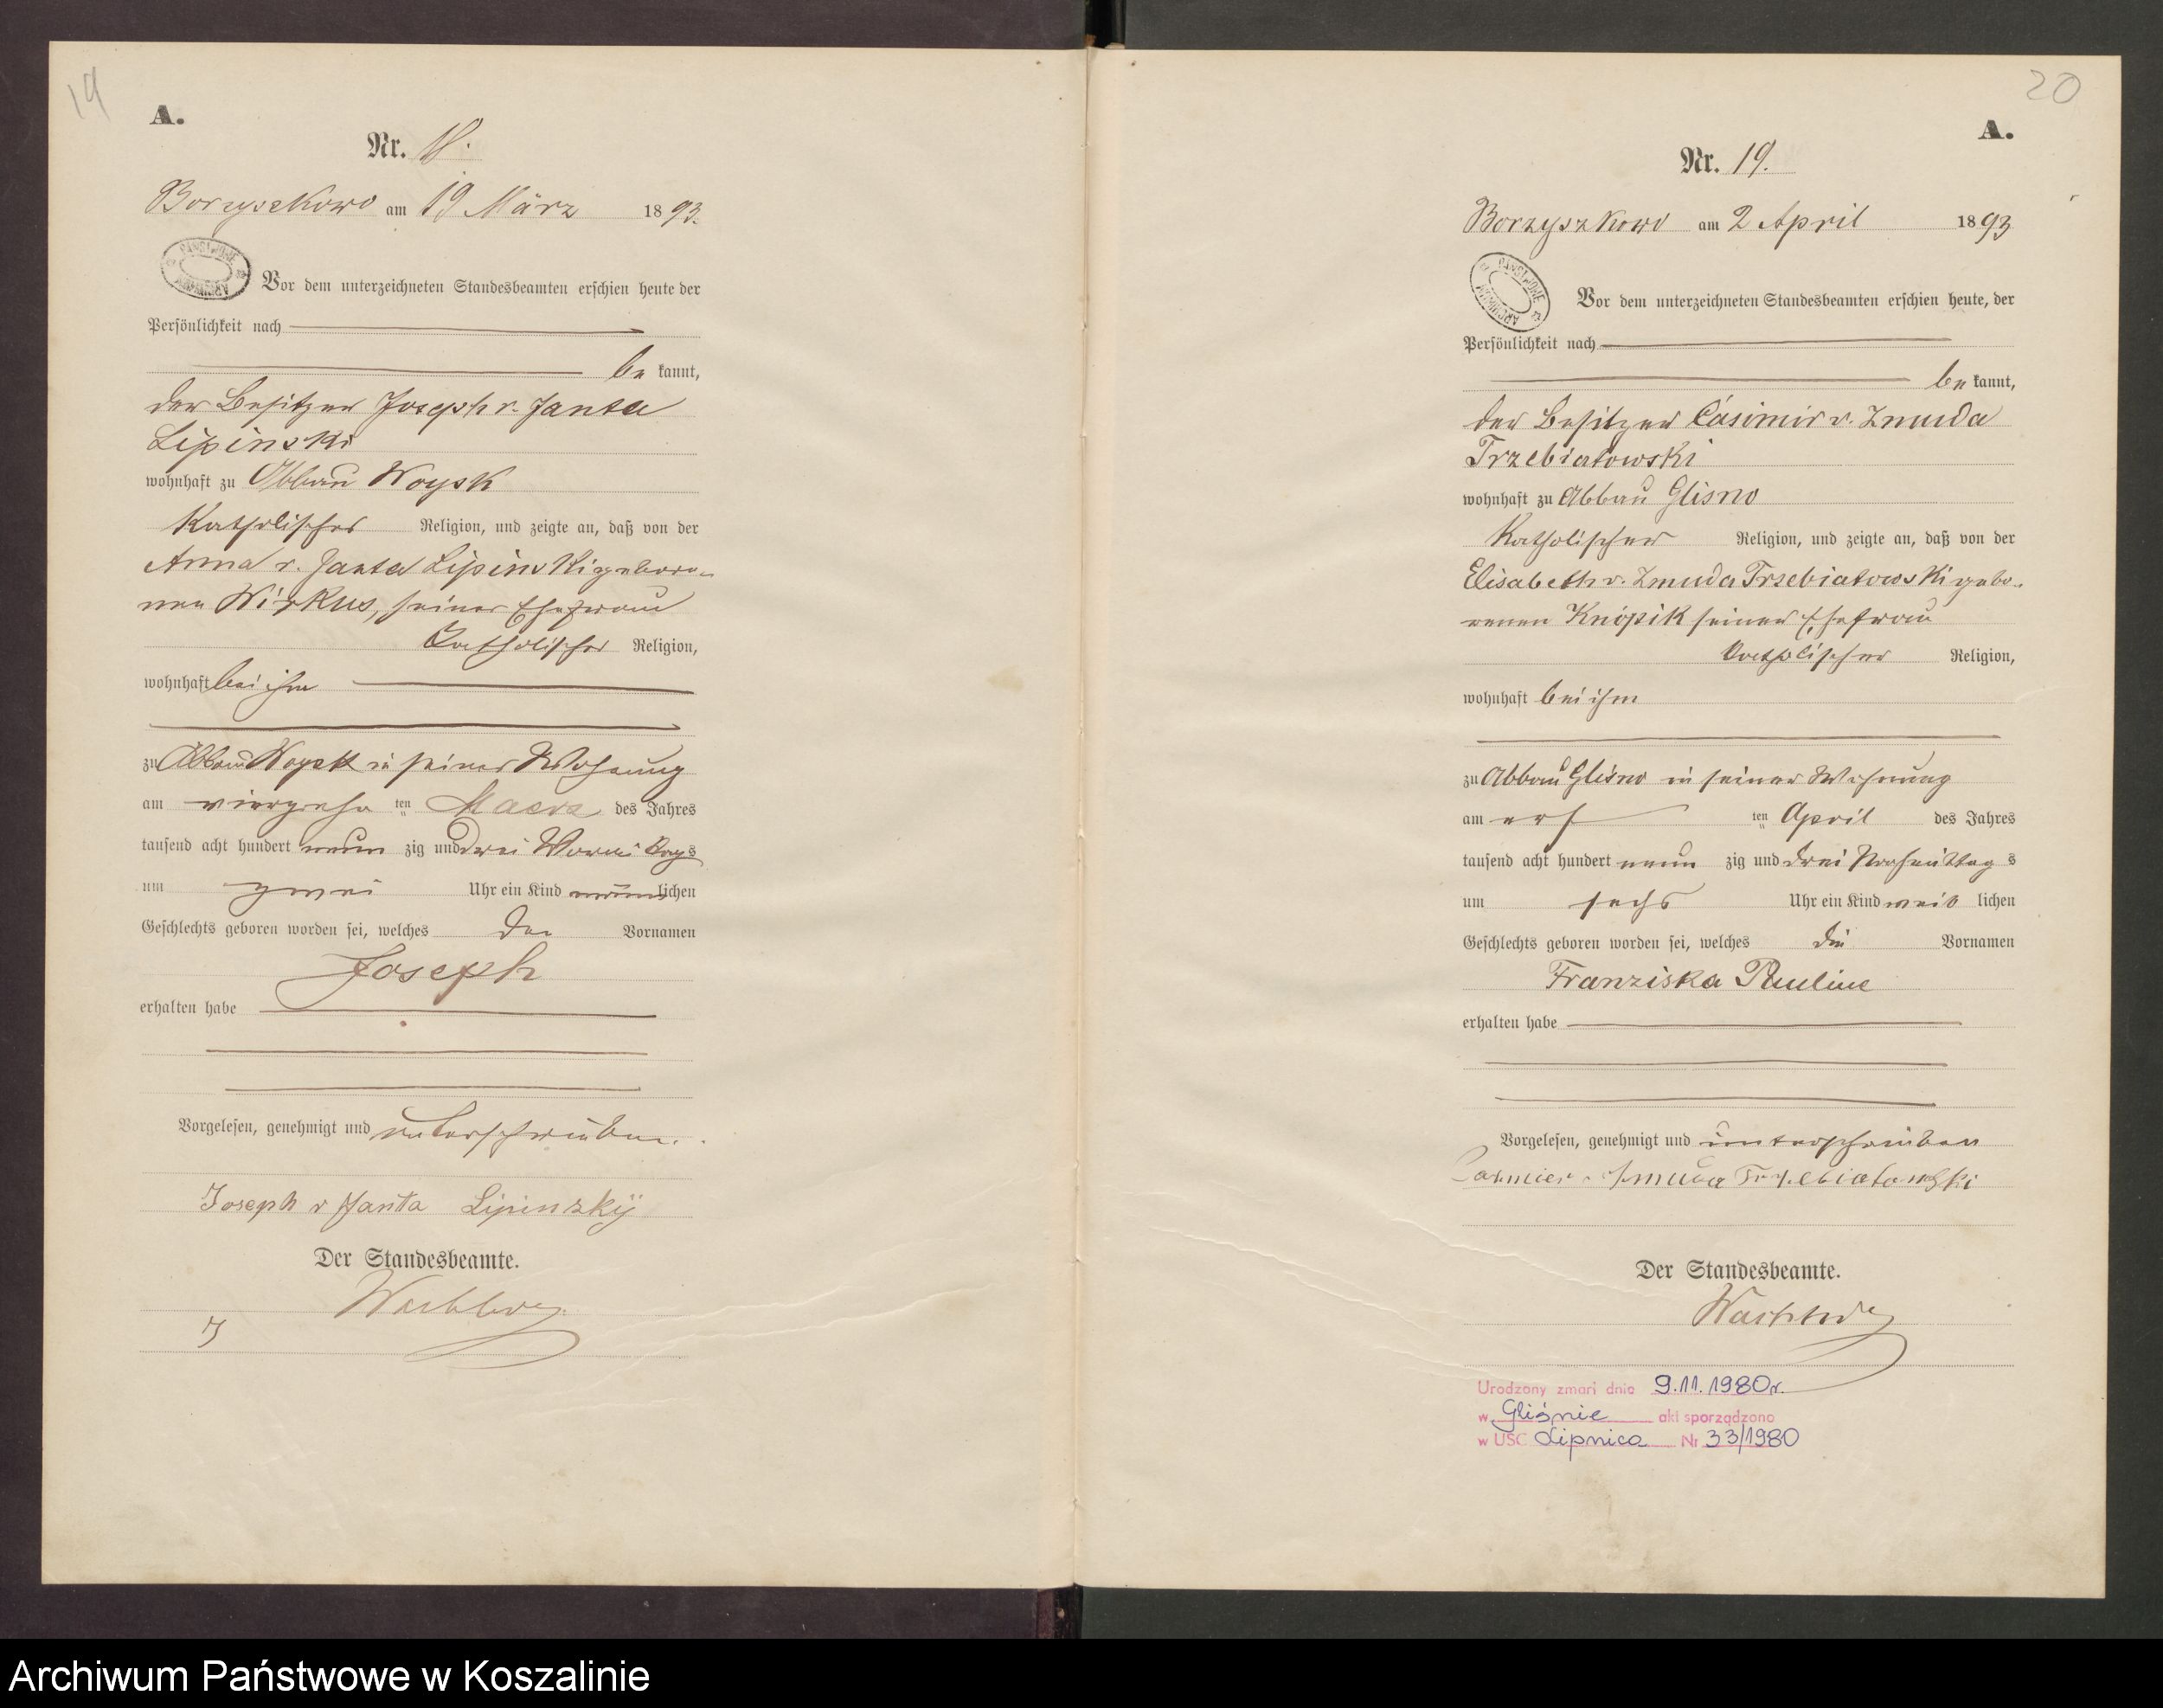 19
A.
Nr. 18.
Borzyszkowo am 19 März 1893.
Vor dem unterzeichneten Standesbeamten erschien heute der
Persönlichkeit nach
be kannt,
der Besitzer Joseph v. Janta
Lipinski
wohnhaft zu Abbau Woysk
Katholischer Religion, und zeigte an, daß von der
Anna v. Janta Lipinski gebore-
nen Wirkus, seiner Ehefrau
Katholischer Religion,
wohnhaft bei ihm
zu Abbau Woysk in seiner Wohnung
am vierzehn ten Maerz des Jahres
tausend acht hundert neun zig und drei Vormittags
um zwei Uhr ein Kind männlichen
Geschlechts geboren worden sei, welches den Vornamen
Joseph
erhalten habe
Vorgelesen, genehmigt und unterschrieben.
Joseph v Janta Lipinskÿ
Der Standesbeamte.
20
A.
Nr. 19.
Borzyszkowo am 2 April 1893
PAŃSTWOWE ARCHIWUM
Vor dem unterzeichneten Standesbeamten erschien heute, der
Persönlichkeit nach
be kannt,
der Besitzer Casimir v. Zmuda
Trzebiatowski
wohnhaft zu Abbau Glisno
Katholischer Religion, und zeigte an, daß von der
Elisabeth v. Zmuda Trzebiatowski gebo-
renen Knopik seiner Ehefrau
Katholischer Religion,
wohnhaft bei ihm
zu Abbau Glisno in seiner Wohnung
am ers ten April des Jahres
tausend acht hundert neun zig und drei Nachmittag s
um sechs Uhr ein Kind weib lichen
Geschlechts geboren worden sei, welches die Vornamen
Franziska Pauline
erhalten habe
Vorgelesen, genehmigt und unterschrieben
Zmuda Trzebiatowski
Der Standesbeamte.
Urodzony zmarł dnia 9.11.1980r.
w Gliśnie akt sporządzono
w USC Lipnica Nr 33/1980
Archiwum Państwowe w Koszalinie